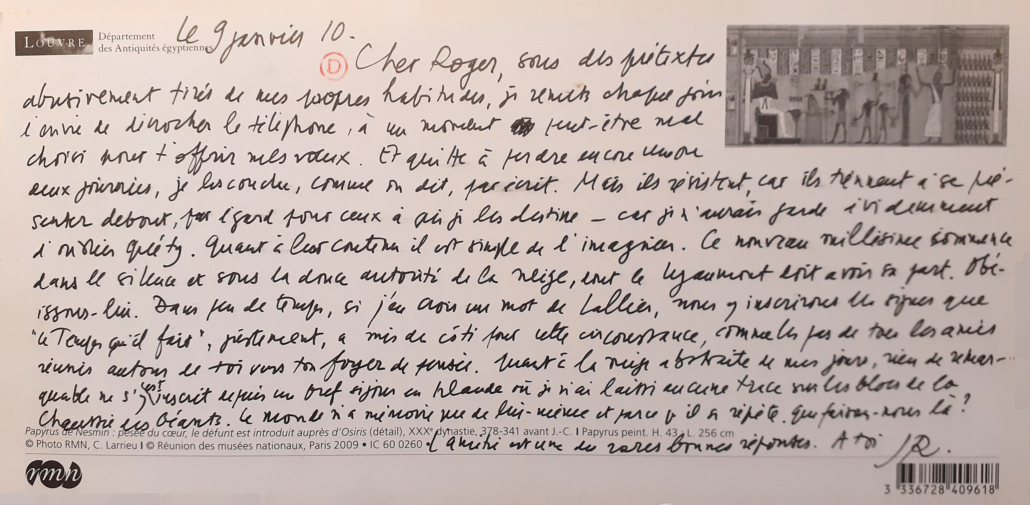 LOUVRE Département
des Antiquités égyptiennes
Le 9 janvier 10.
D Cher Roger, sous des prétextes
abusivement tirés de mes propres habitudes, je remets chaque jour
l'envie de décrocher le téléphone, à un moment peut-être mal
choisi pour t'offrir mes vœux. Et quitte à perdre encore une ou
deux journées, je les couche, comme on dit, par écrit. Mais ils résistent, car ils tiennent à se pré-
senter debout, par égard pour ceux à qui je les destine – car je n'aurais garde évidemment
d'oublier Quéty. Quant à leur contenu il est simple de l'imaginer. Ce nouveau millésime commence
dans le silence et sous la douce autorité de la neige, dont le doit avoir sa part. Obé-
issons-lui. Dans peu de temps, si j'en crois un mot de Lallier, nous y inscrirons les signes que
"Le Temps qu'il fait", justement, a mis de côté pour cette circonstance, comme les pas de tous les amis
réunis autour de toi vers ton foyer de pensée. Quant à la neige abstraite de mes jours, rien de remar-
quable ne s'y est inscrit depuis un bref séjour en Irlande où je n'ai laissé aucune trace sur les blocs de la
Chaussée des Géants. Le monde n'a mémoire que de lui-même et parce qu'il se répète. Que faisons-nous là?
Papyrus de Nesmin : pesée du cœur, le défunt est introduit auprès d'Osiris (détail), XXXe dynastie, 378-341 avant J.-C. I Papyrus peint. H. 43 ; L. 256 cm
© Photo RMN, C. Larrieu I © Réunion des musées nationaux, Paris 2009 • IC 60 0260
L'amitié est une des rares bonnes réponses. A toi JR.
rmn
3 336728 409618